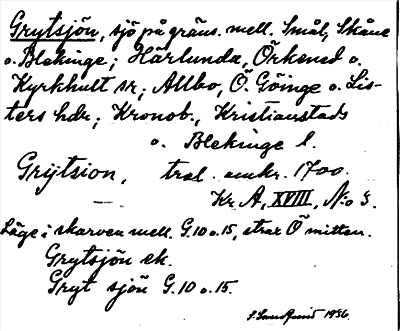 Grytsjön, sjö på gräns. mell. Smål, Skåne
o. Blekinge; Härlunda, Örkened o.
Kyrkhult sr; Allbo, Ö. Göinge o. Lis-
ters hdr; Kronob., Kristianstads
o. Blekinge l.
Grÿtsion, tral. omkr. 1700.
Kr. A, XVIII, No 3.
Läge i skarven mell. G. 10 o. 15, strax Ö mitten.
Grytsjön ek.
Gryt sjön G. 10 o. 15.
1936